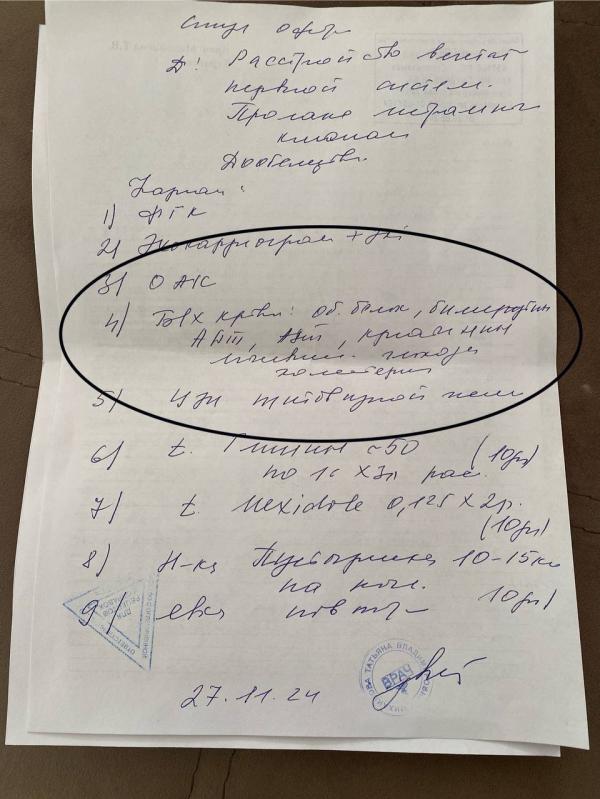 Д: Расстройство вегетат
нервной систем.
Пролапс митральн
клапан
1) ФГК
2) Эхокардиограм + ЭКГ
3) ОАК
4) Б/х крови: об. белок, билирубин
АЛТ, АСТ, креатинин
мочевин. глюкоза
холестерин
5) УЗИ щитовидной желе
6) t. Глицин 50
по 1т х 3р рас. (10дн)
7) t. Mexidole 0,125 х 2р.
(10дн)
8) Н-ка Пустырника 10-15к
на ноч. 10дн)
9) явка повтор
27.11.24
ТАТЬЯНА ВЛАДИМ
ВРАЧ